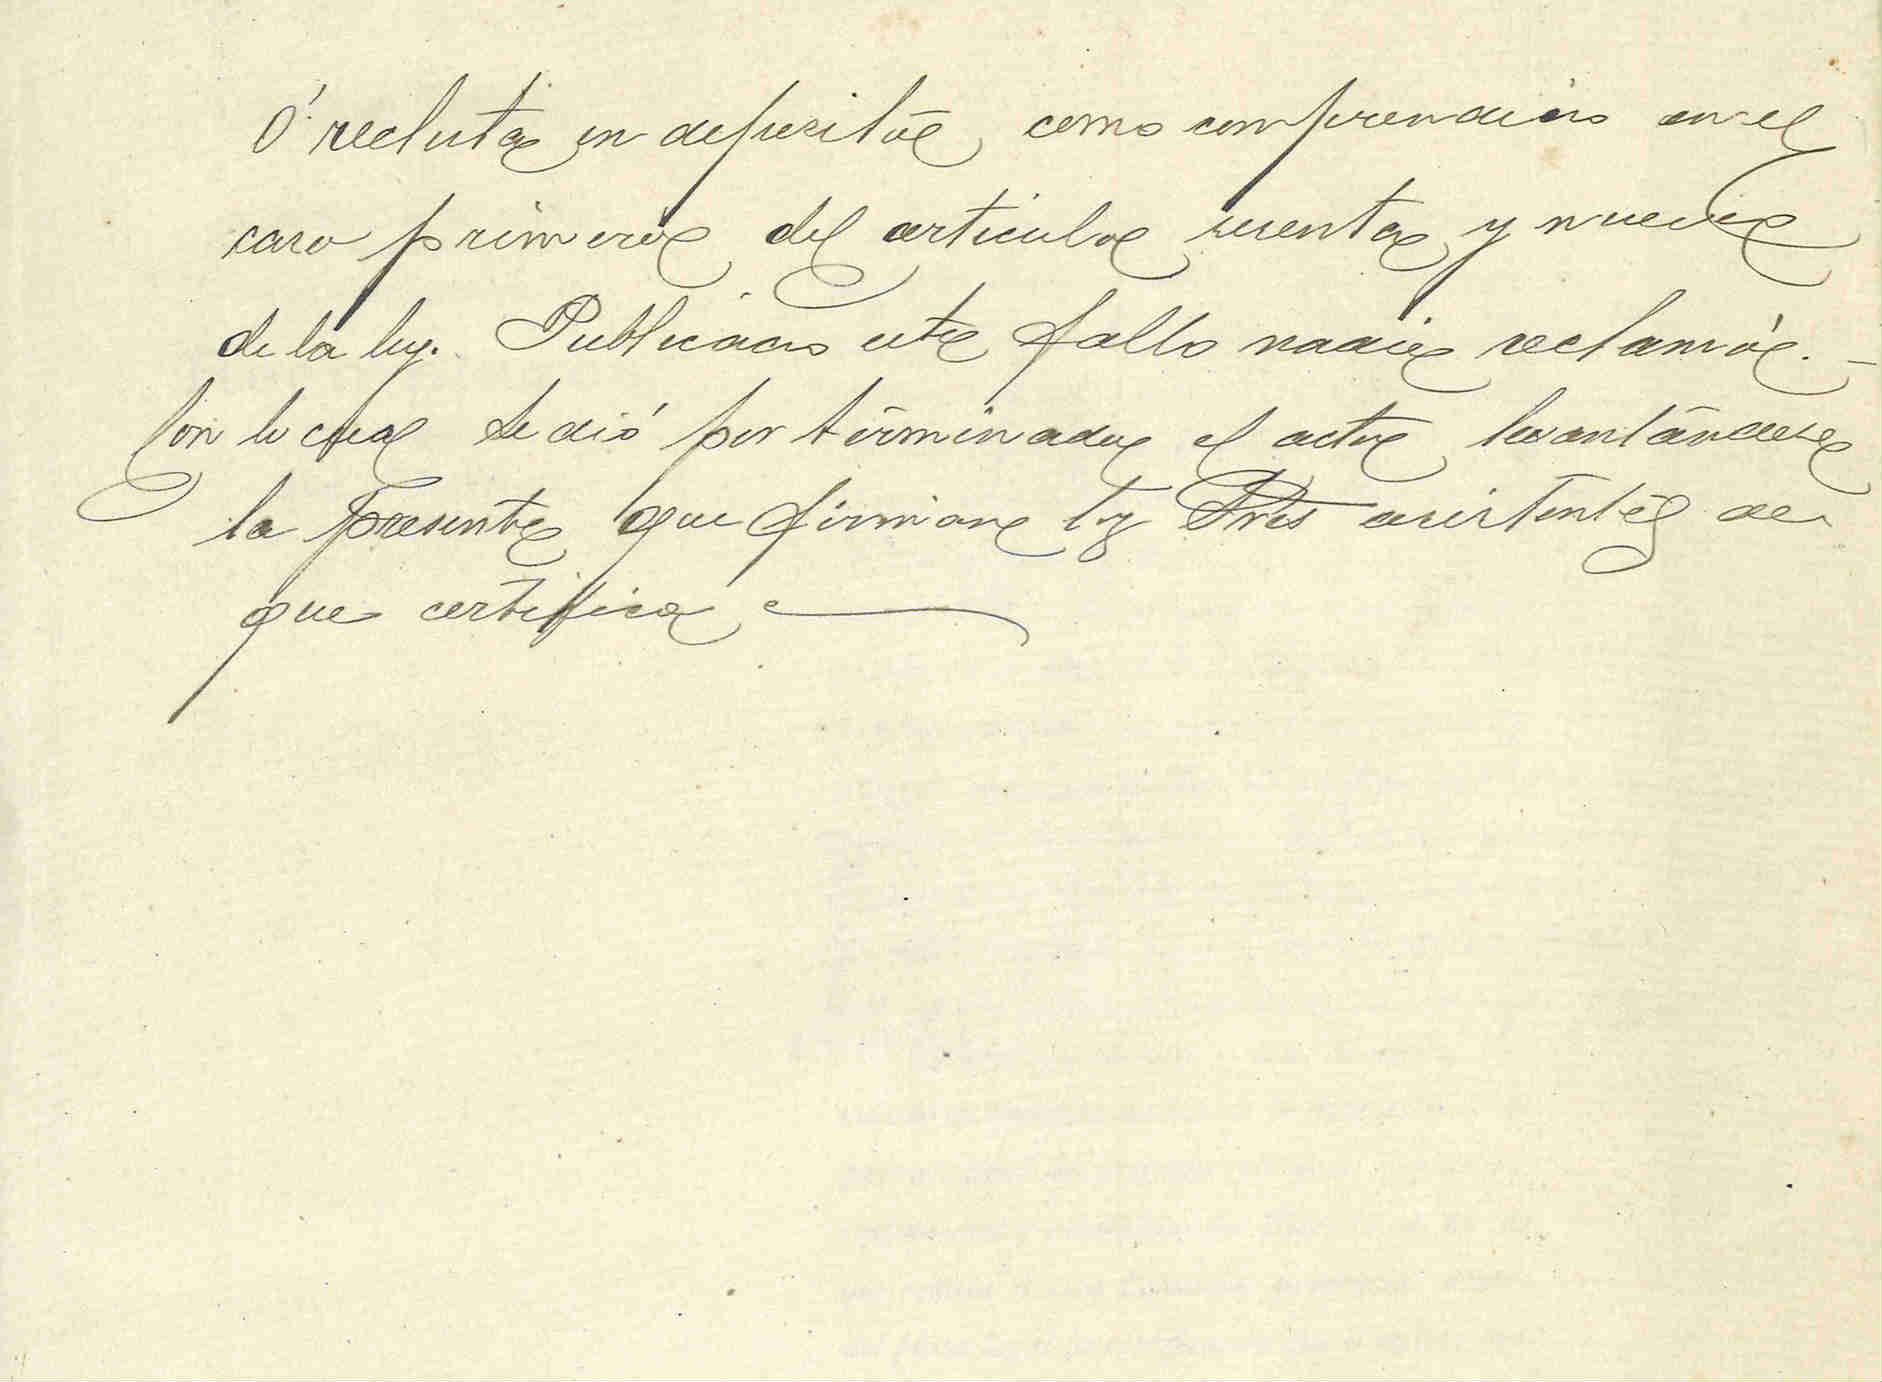 ó recluta en depósito como comprendido en el
caso primero del artículo sesenta y nueve
de la ley. Publicado este fallo nadie reclamó. —
Con lo cual se dió por terminado el acto levantándose
la presente que firman los Sres asistentes de
que certifico